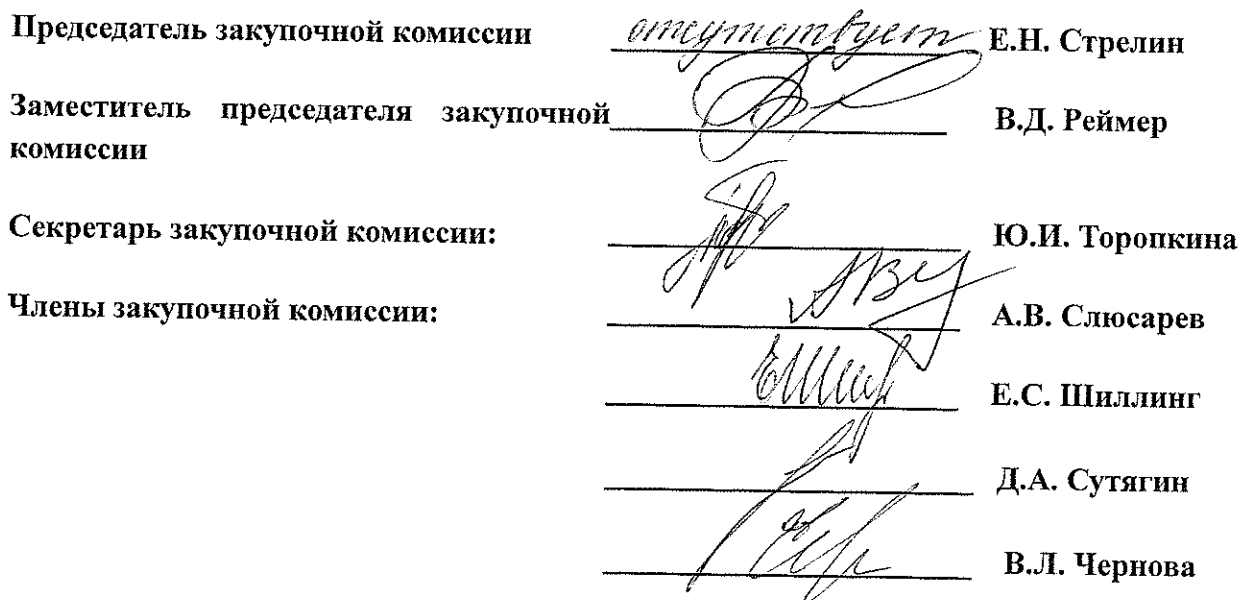 Председатель закупочной комиссии отсутствует Е.Н. Стрелин
Заместитель председателя закупочной
комиссии В.Д. Реймер
Секретарь закупочной комиссии: Ю.И. Торопкина
Члены закупочной комиссии: А.В. Слюсарев
Е.С. Шиллинг
Д.А. Сутягин
В.Л. Чернова